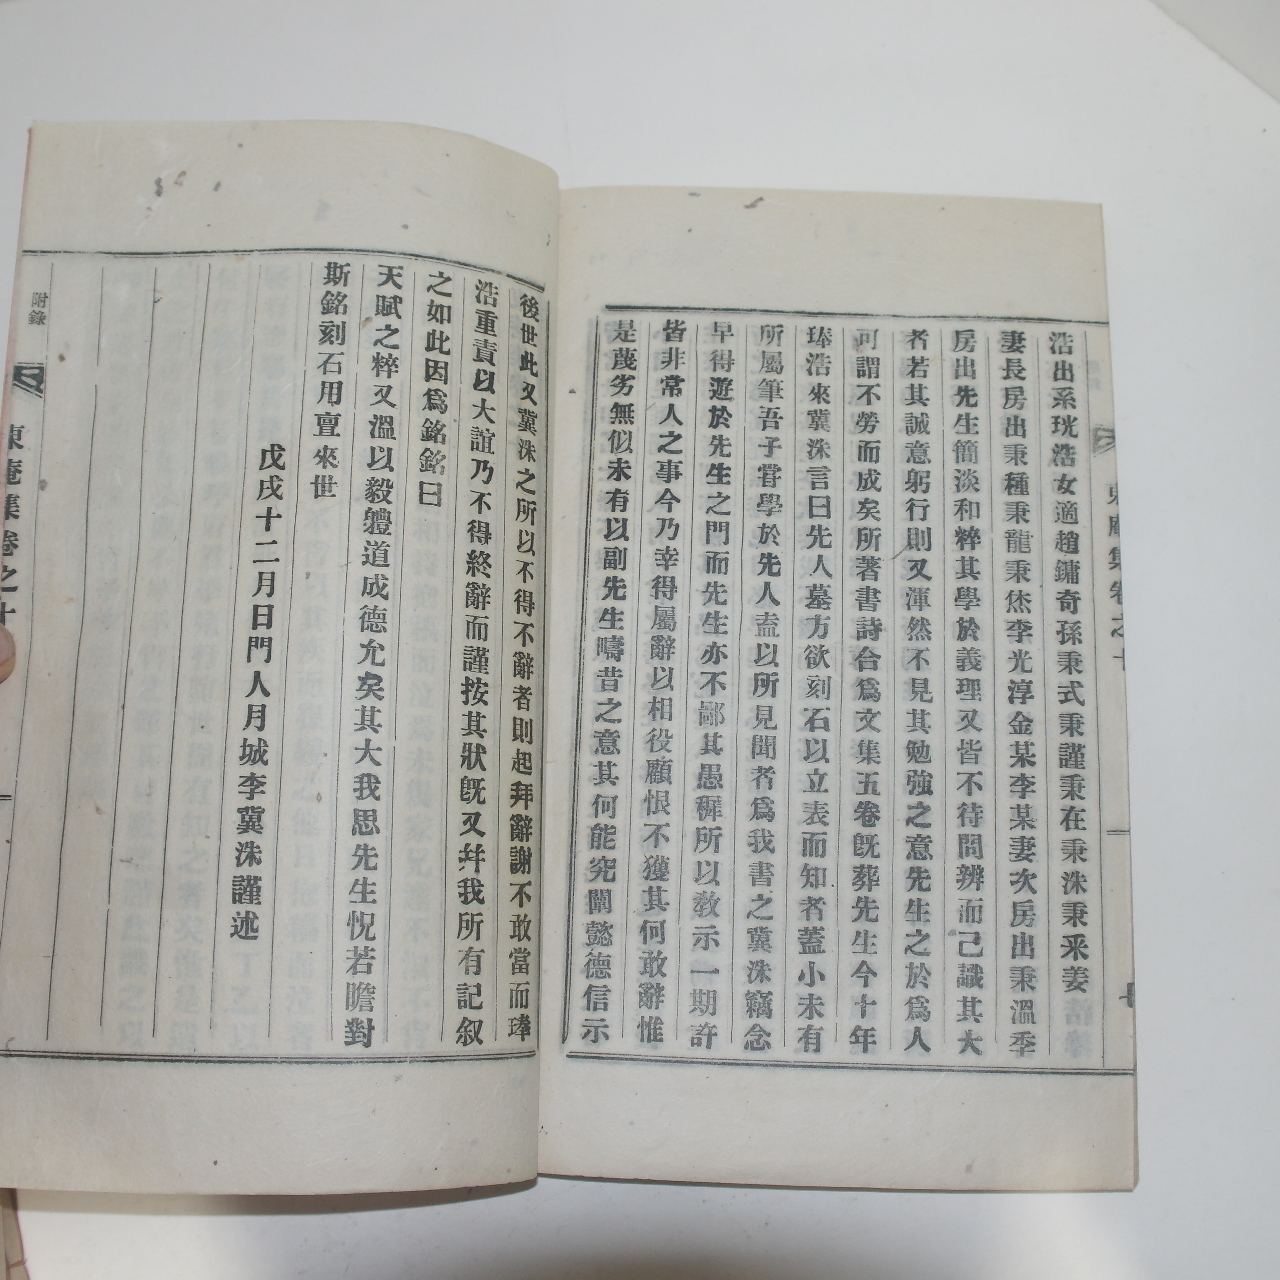 浩出系珖浩女適趙鏞奇孫秉式秉謹秉在秉洙秉采姜
妻長房出秉種秉龍秉烋李光淳金某李某妻次房出秉溫季
房出先生簡淡和粹其學於義理又皆不待問辨而己識其大
者若其誠意躬行則又渾然不見其勉強之意先生之於爲人
可謂不勞而成矣所著書詩合爲文集五卷旣葬先生今十年
琫浩來冀洙言曰先人墓方欲刻石以立表而知者蓋小未有
所屬筆吾子甞學於先人盍以所見聞者爲我書之冀洙竊念
早得遊於先生之門而先生亦不鄙其愚穉所以敎示一期許
皆非常人之事今乃幸得屬辭以相役顧恨不獲其何敢辭惟
是蔑劣無似未有以副先生疇昔之意其何能究闡懿德信示
後世此又冀洙之所以不得不辭者則起拜辭謝不敢當而琫
浩重責以大誼乃不得終辭而謹按其狀旣又幷我所有記叙
之如此因爲銘銘曰
天賦之粹又溫以毅軆道成德允矣其大我思先生怳若瞻對
斯銘刻石用亶來世
戊戌十二月日門人月城李冀洙謹述
附錄
東庵集卷之十